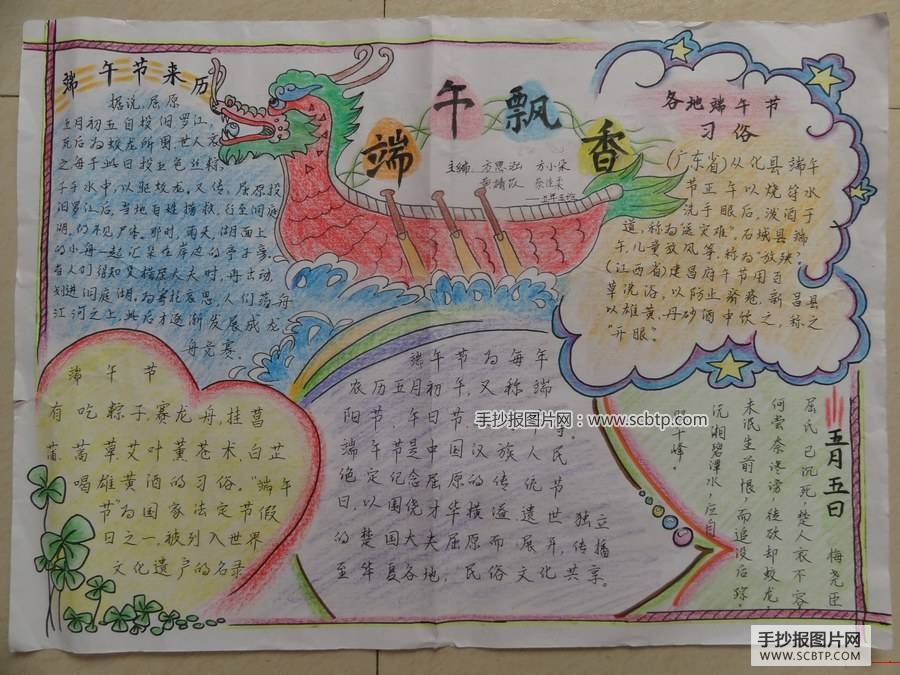 端午飘香
主编：方思涵 方小朵
五年五班
端午节来历
据说，屈原
五月初五自投汨罗江，
死后为蛟龙所困，世人哀
之，每于此日投五色丝粽
子于水中，以驱蛟龙。又传，屈原投
汨罗江后，当地百姓捞救，行至洞庭
湖，终不见尸体。那时，雨天，湖面上
的小舟一起汇集在岸边的亭子旁。
当人们得知又捞屈大夫时，再出动，
划进洞庭湖。为寄托哀思，人们荡舟
江河之上，此后才逐渐发展成龙
舟竞赛。
各地端午节
习俗
(广东省)从化县端午
节正午以烧符水
洗手眼后，泼洒于
道，称为"送灾难"。石城县端
午，儿童放风筝，称为"放殃"。
(江西省)建昌府午节用百
草洗浴，以防止疥疮。新昌县
以雄黄、丹砂酒中饮之，称之
"开眼"。
端午节
有吃粽子，赛龙舟，挂菖
蒲、蒿草、艾叶，薰苍术、白芷
喝雄黄酒的习俗。"端午
节"为国家法定节假
日之一，被列入世界
文化遗产的名录
端午节为每年
农历五月初午，又称端
阳节 午日节
端午节是中国汉族人民
绝定纪念屈原的传统节
日，以围绕才华横溢、遗世独立
的楚国大夫屈原而展开，传播
至华夏各地，民俗文化共享。
五月五日
梅尧臣
屈氏已沉死，楚人哀不容
何尝奈谗谤，徒欲却蛟龙
未泯生前恨，而追没后踪
沅湘碧潭水，应自
照千峰。
手抄报图片网：www.scbtp.com
手抄报图片网
WWW.SCBTP.COM